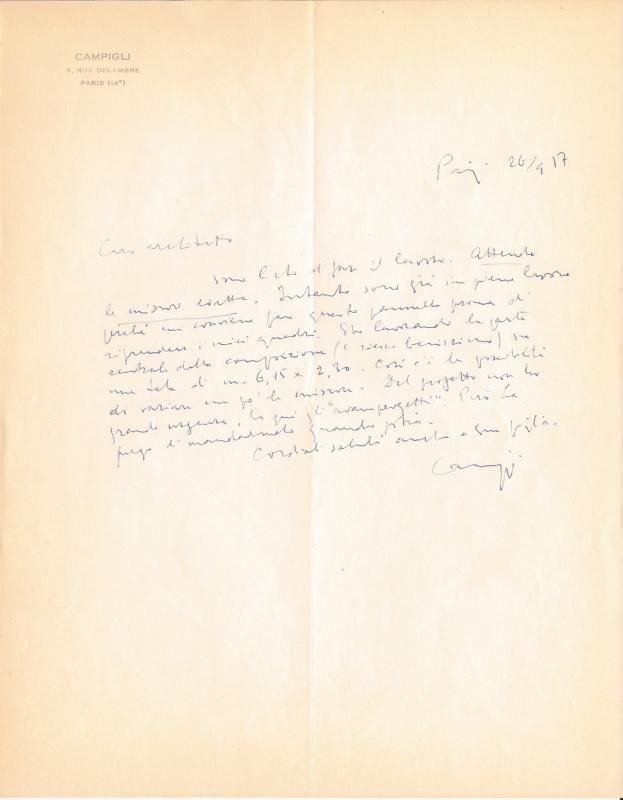 CAMPIGLI
9, RUE DELAMBRE
PARIS (14e)
Parigi 26/9
Caro architetto
sono lieto di fare il lavoro. Attendo
le misure esatte. Intanto sono già in pieno lavoro
perché mi conviene fare questo pannello prima di
riprendere i miei quadri. Sto lavorando la parte
centrale della composizione (e riesce benissimo) su
una tela di m. 6,15 x 2,30. Così c'è la possibilità
di variare un po' le misure. Del progetto non ho
grande urgenza, ho qui gli "avamprogetti". Però La
prego di mandarmelo quando potrà.
Cordiali saluti anche a Sua figlia.
Campigli